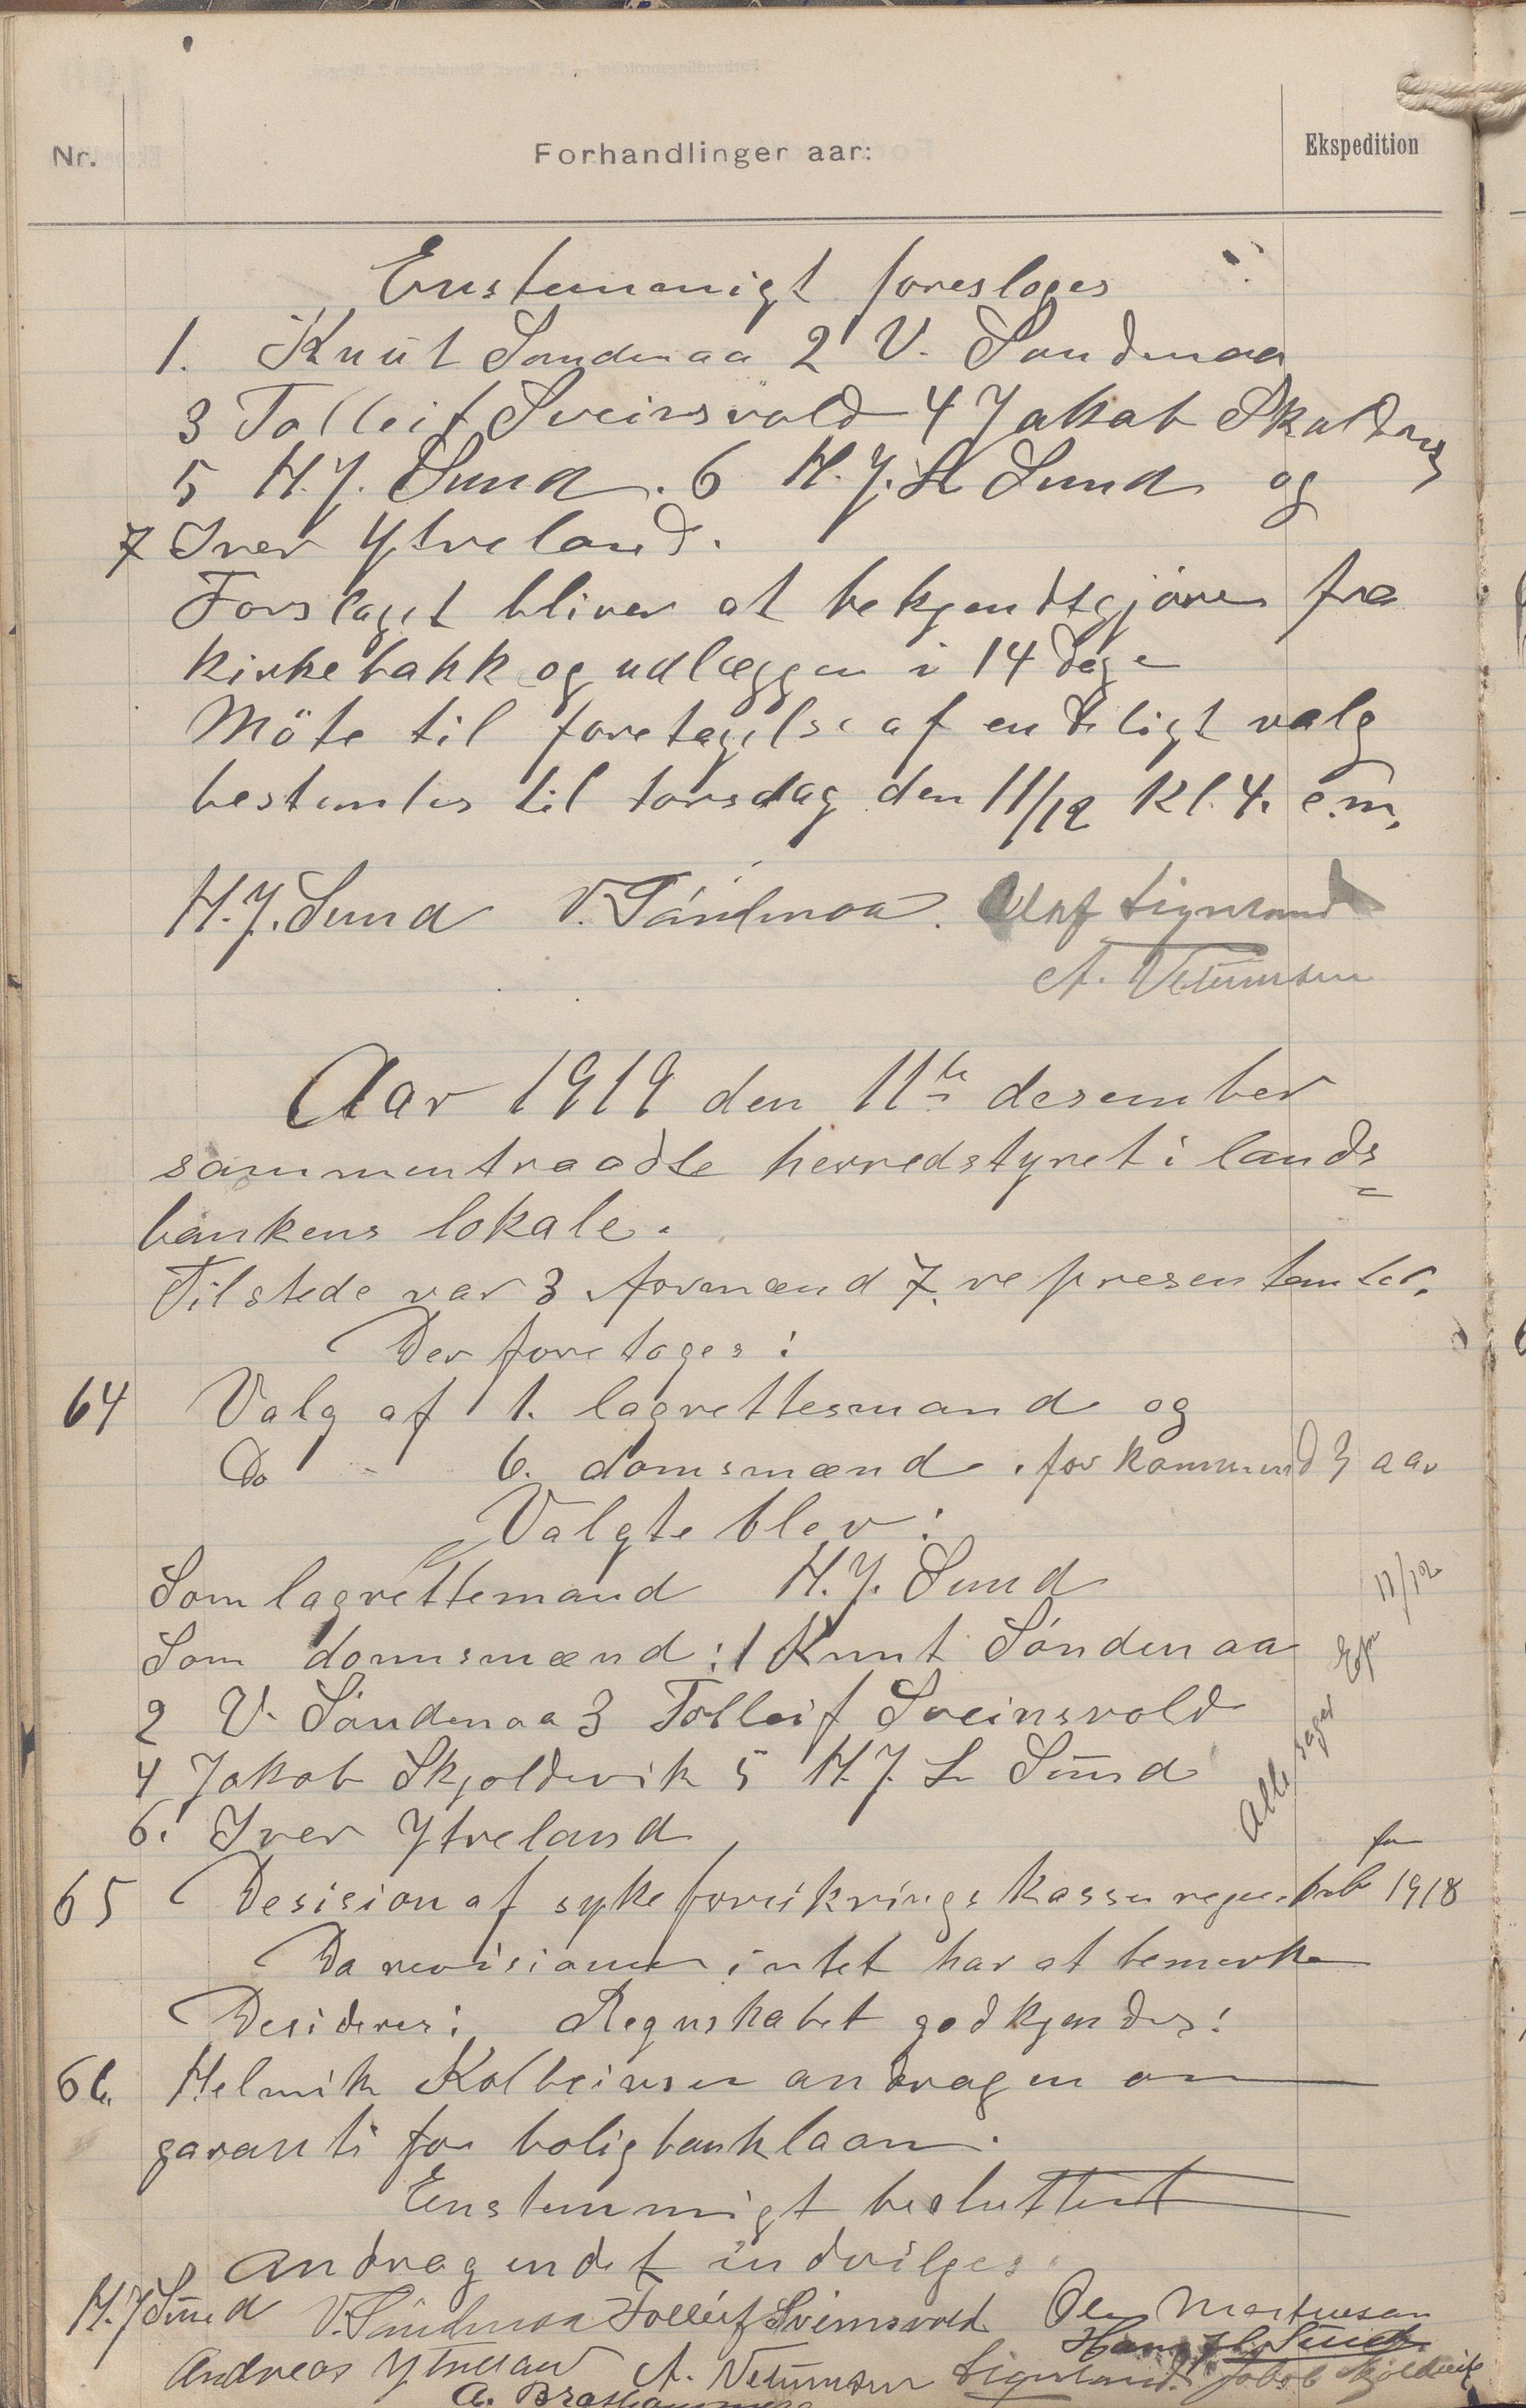 Nr.
Forhandlinger aar:
Ekspedition
Enstemmigt foresloges
1. Knut Søndenaa 2 V. Søndenaa
3 Tolleif Sveinsvold 4 Jakob
5 H. J. Sund. 6 H. J. L Sund og
7 Iver Ytreland.
Forslaget bliver at bekjendtgjøres fra
kirkebakk og udlægges i 14 dage
Möte til foretagelse af endeligt valg
bestemtes til torsdag den 11/12 Kl. 4. e.m.
H. J. Sund V. Söndenaa. Olaf Lignland
A.
Aar 1919 den 11te desember
sammentraadte herredstyret i lands
bankens lokale.
Tilstede var 3 formænd 7. representanter.
Der foretages:
64 Valg af 1. lagrettesmand og
Do - 6. domsmænd. for kommend 3 aar
Valgte blev:
Som lagrettemand H. J. Sund
Som domsmænd: 1 Knut Söndenaa
2 V. Söndenaa 3 Tolleif Sveinsvold
4 Jakob Skjoldevik 5 H. J. L Sund
6. Iver Ytreland
Alle sager Exp 11/12
65 Desision af sykeforsikringskassens regnskab for 1918
Da revisionen intet har at bemerke
Desideres: Regnskabet godkjendes!
66. Helmik Kolbeinsen andragen om
garanti for boligbanklaan.
Enstemmigt besluttet
Andragendet indvilges.
H. J Sund V. Söndenaa Tolleif Sveinsvold Ole Martinesen
Hans J L Sund
Andreas Ytreland A. Lignland. Jakob Skjoldevik
A.